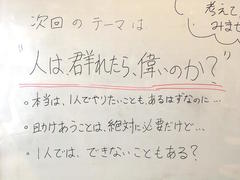 考えて
みませ
次回のテーマは
"人は、群れたら、偉いのか?"
• 本当は、1人でやりたいことも、あるはずなのに…
• 助けあうことは、絶対に必要だけど…
• 1人では、できないこともある?